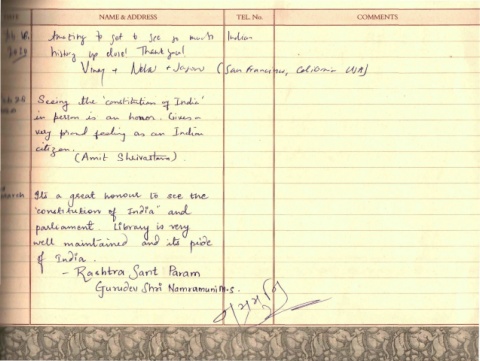 NAME & ADDRESS TEL. No. COMMENTS
to get to see so much Indian
history up close! Thank you!
Vinay + Neha + (San Francisco, USA)
Seeing the 'constitution of India'
in person is an honor. Gives a
very proud feeling as an Indian
citizen.
(Amit Shrivastava)
Its a great honour to see the
'constitution of India' and
parliament. Library is very
well maintained and its pride
of India.
- Rashtra Sant Param
Gurudev Shri Namramuni M.S.